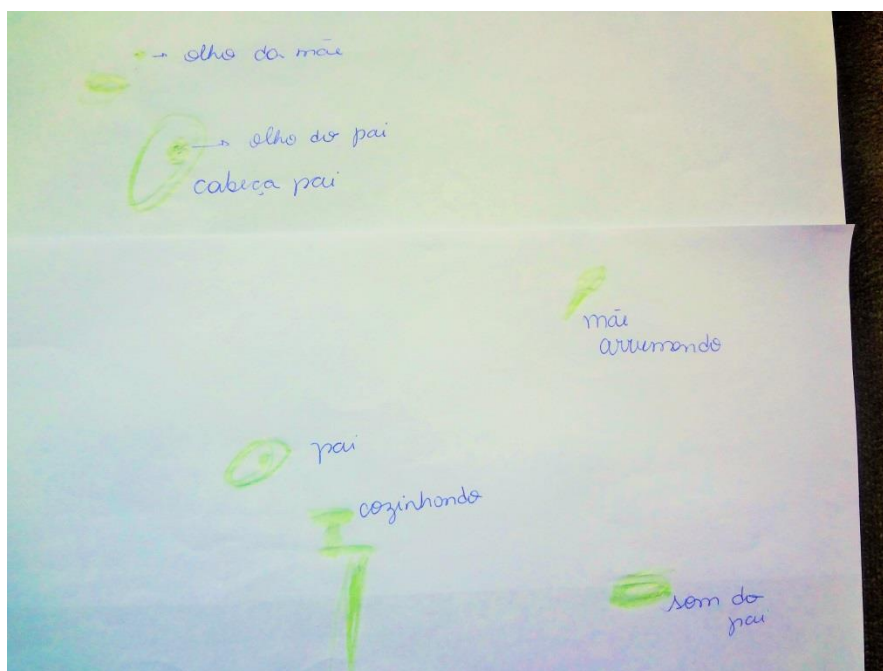 olho da mãe
olho do pai
cabeça pai
mãe
arrumando
pai
cozinhando
som do
pai